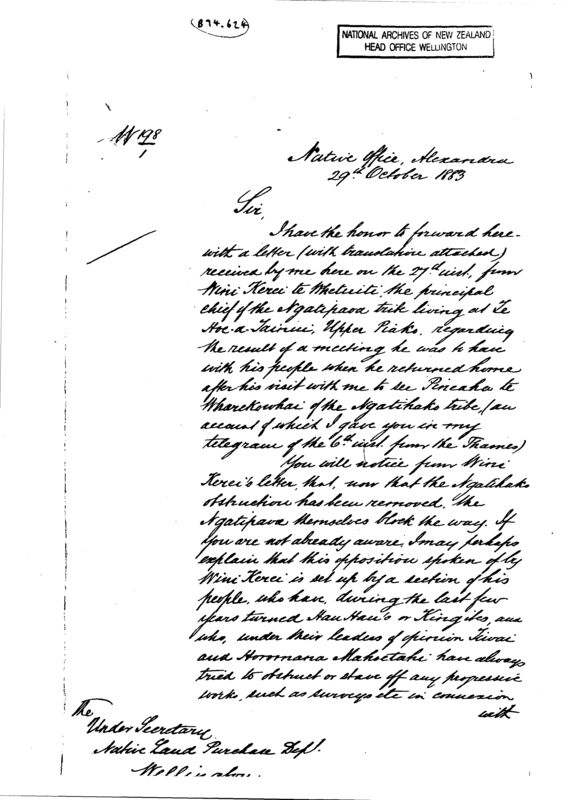 (B74.624)
NATIONAL ARCHIVES OF NEW ZEALAND
HEAD OFFICE WELLINGTON
198
1
Native Office, Alexandra
29th October 1883
Sir,
I have the honor to forward here-
with a letter (with translation attached)
received by me here on the 27th inst, from
Wini Kerei te Whetuiti, the principal
chief of the Ngatipava tribe living at Te
Hoe-o-Tainui, Upper Piako, regarding
the result of a meeting he was to have
with his people when he returned home
after his visit with me to see Pineaha te
Wharekowhai of the Ngatihako tribe, (an
account of which I gave you in my
telegram of the 6th inst. from the Thames)
You will notice from Wini
Kerei's letter, that, now that the Ngatihako
obstruction has been removed, the
Ngatipava themselves block the way. If
you are not already aware, I may perhaps
explain that this opposition spoken of by
Wini Kerei is set up by a section of his
people, who have, during the last few
years turned Hau Hau's or Kingites, and
who, under their leaders of opinion Tiwai
and Horomana have always
tried to obstruct or stave off any progressive
work, such as surveys etc in connexion
with
The
Under Secretary
Native Land Purchase Dept.
Wellington.